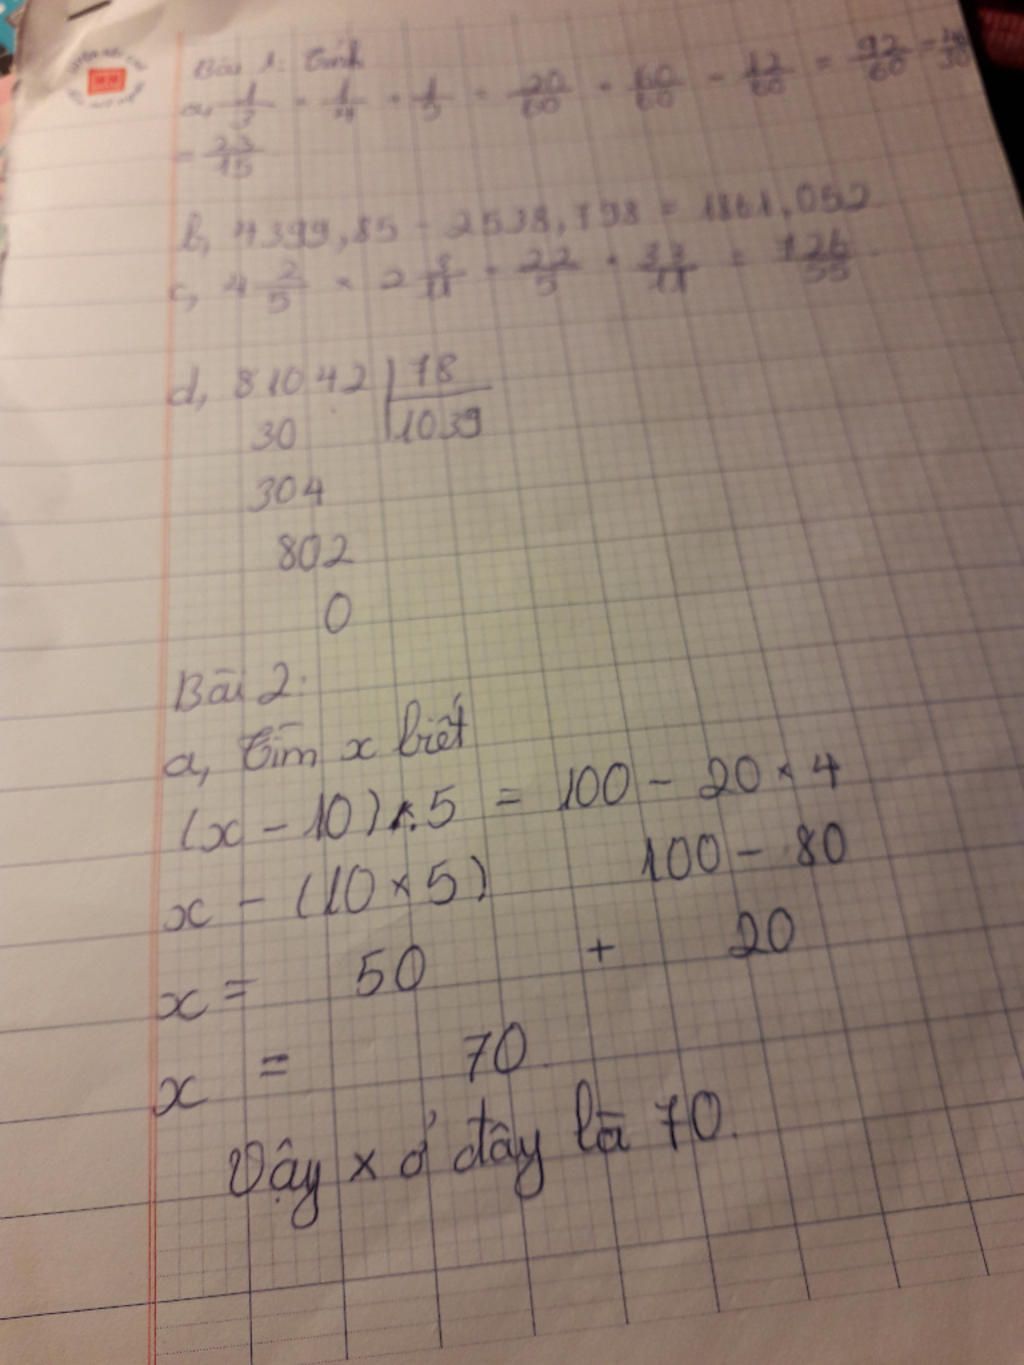 Bài 1: Tính
a, 1/3 + 1/4 + 1/5 = 20/60 + 60/60 - 12/60 = 92/60 =
= 23/15
b, 4399,85 - 2538,798 = 1861,052
c, 4 2/5 × 2 /11 = 22/5 × 33/11 = 726/55
d, 81042 78
30 1039
304
802
0
Bài 2:
a, tìm x biết
(x - 10) × 5 = 100 - 20 × 4
x - (10 × 5) 100 - 80
x = 50 + 20
x = 70
Vậy x ở đây là 70.